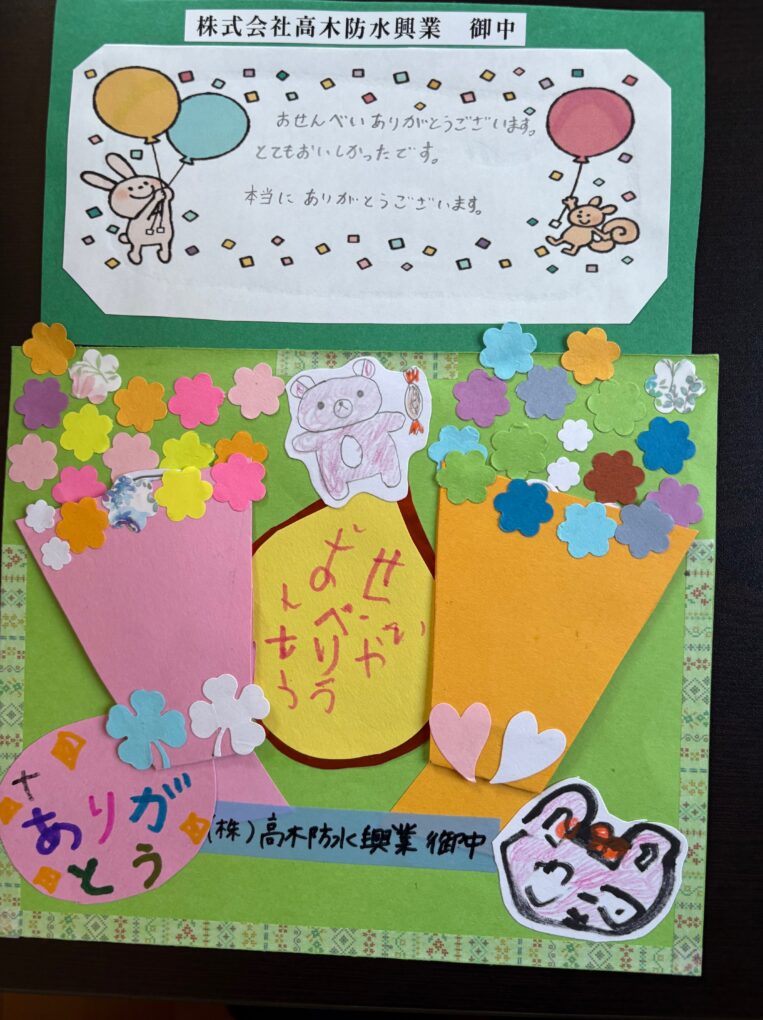 株式会社高木防水興業　御中
おせんべいありがとうございます。
とてもおいしかったです。
本当にありがとうございます。
ありが
とう
(株)高木防水興業御中